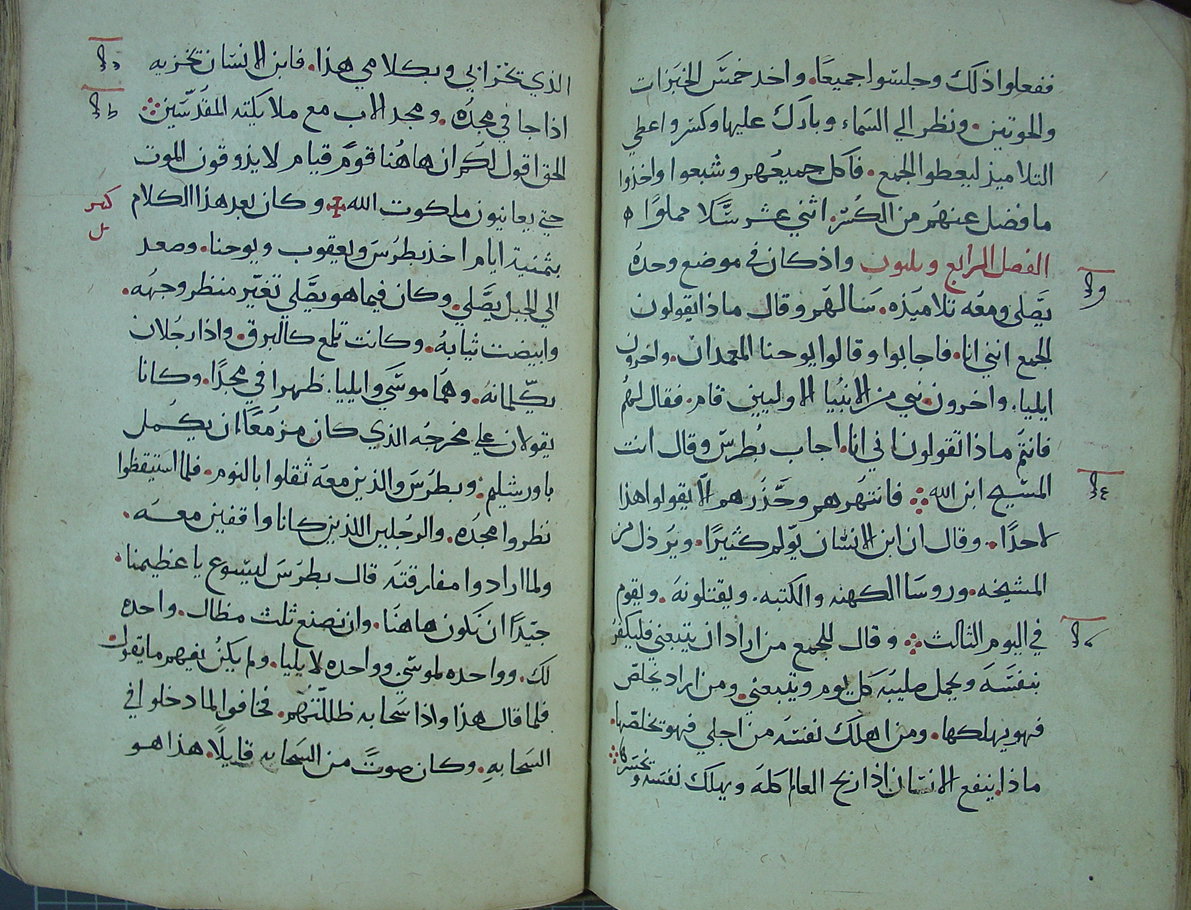 ففعلوا ذلك وجلسوا جميعًا. واخد خمسَ الخبَزات
والحوتين. ونظر الي السَماء وبارك عليها وكسَر واعطي
التلاميذ ليعطوا الجمع. فاكل جميعُهم وشبعوا واخذوا
ما فضل عنهُم من الكُسَر. اثني عشر سَّلا مملوًا
الفصل الرابع وثلثون واذ كان في موضع وحدهُ
يَصَّلي ومعُه تلاميَذه. سَالهَم وقال ماذا تقولون
الجمع انني انا. فاجابوا وقالوا يوحنا المعمدان. واخرون
ايليا. واخرون نبي من الانبُيا الاوليين قام. فقال لهُم
فانتُم ماذا تقولون اني انا. اجاب بُطرسَ وقال انت
المسَيح ابن الله فانتهَرهم وحَّذَرهم الّا يقولوا هذا
لاحدًا. وقال ان ابن الانسَان يَولم كثيرًا. ويَرذل من
المشيخه. وروسَا الكهنه والكتبه. ويقتلونهَ. ويقوم
في اليوم الثالث وقال للجمع من اراد ان يتبعني فليكفُر
بنفسَهَ ويحمل صليبَهَ كل يوم ويتبعني. ومن اراد يخلص
فهو يهلكها. ومن اهلك نفسَهَ من اجلي فهو يخلصَها.
ماذا ينفع الانسَان اذا ربح العالم كلهَ ويهلك نفسَهَ ويخسَرها
الذي يخزا بي وبكلامي هذا. فابن الانسَان يخزيه
اذا جا في مجدُه. ومجد الاب مع ملايكته المقدّسَين
الحق اقول لكم ان هاهُنا قومً قيام لا يذوقون الموت
حتي يعاينون ملكوت الله وكان بعد هذا الكلام
بثمنية ايام اخذ بطرُسَ ويعقوب ويوحنا. وصعد
الي الجبل يصَّلي. وكان فيما هو يصَّلي تغيّر منظر وجهُه.
وابيضت ثيابهُ. وكانت تلمع كالبرق. واذا رجُلان
يكّلمانهُ. وهُما موسَي وايليا. ظهرا في مجدًا. وكانا
يقولان علي مخرجُه الذي كان مزمُعًا ان يكُمل
باورشليم. وبطرُسَ والذين معهَ ثقلوا بالنوم. فلما استيقظوا
نظروا مجدُه. والرجُلين اللذين كانا واقفين معهَ.
ولما ارادوا مفارقتهَ قال بطرسَ ليسَوع يا عظيمنا.
جيّدًا ان نكون هاهنَا. وان نصنع ثلث مظال. واحده
لك. وواحده لموسَي وواحده لايليا. ولم يكنُ يفهم ما يقول.
فلما قال هذا واذا سَحابه ظللَتهُم. فخافوا لما دخلوا في
السَحابه. وكان صوتً من السَحابه قايلًا. هذا هو